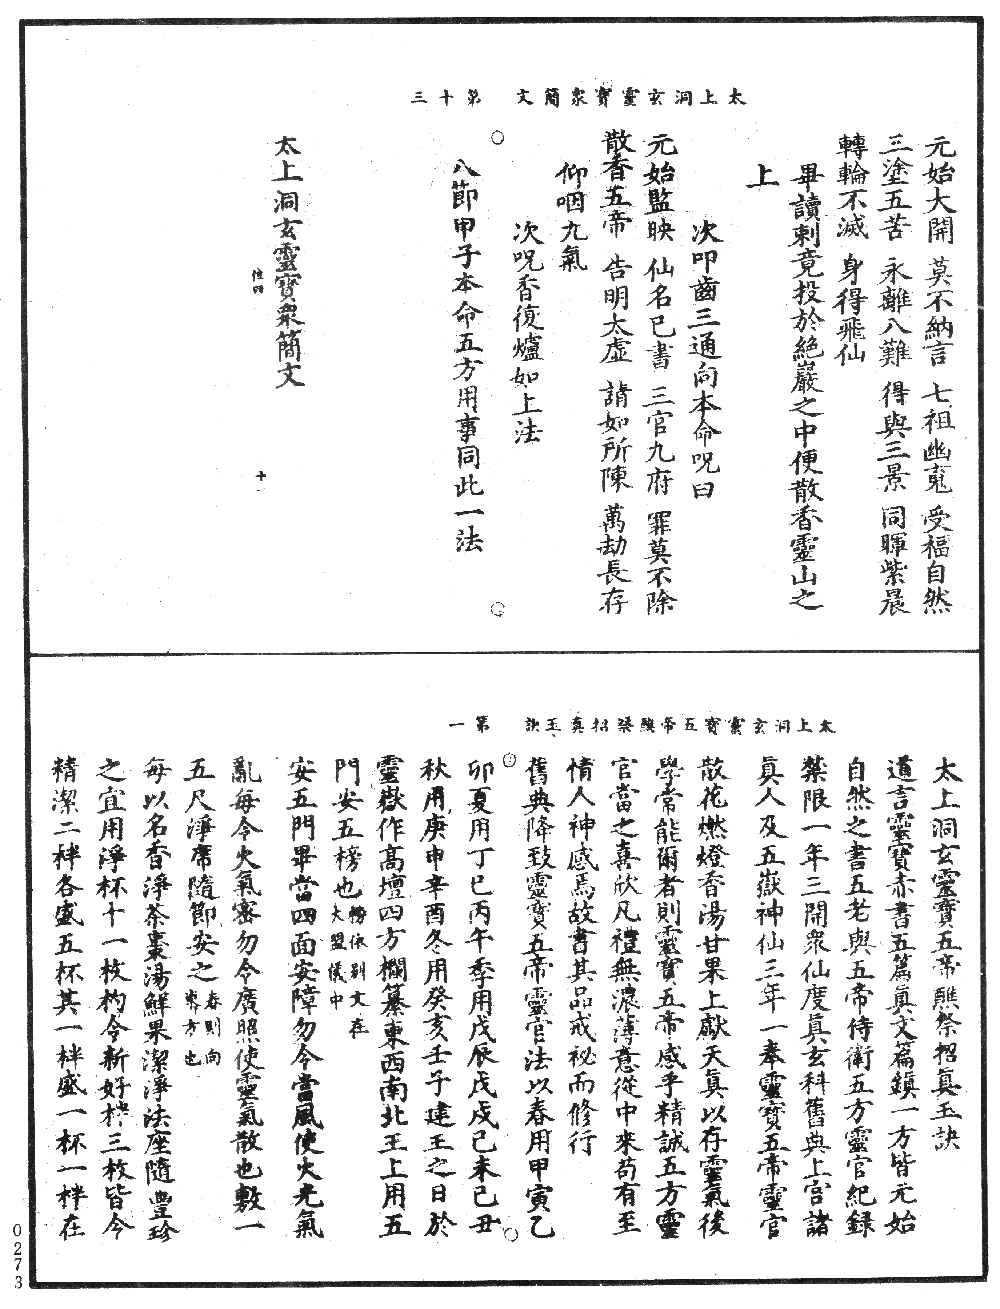 太上洞玄靈寶衆簡文　第十三
元始大開　莫不納言　七祖幽䰟　受福自然
三塗五苦　永離八難　得與三景　同暉紫晨
轉輪不滅　身得飛仙
畢讀剌竟投於絶巖之中便散香靈山之
上
次叩齒三通向本命呪曰
元始監映　仙名已書　三官九府　罪莫不除
散香五帝　告明太虛　請如所陳　萬劫長存
仰咽九氣
次呪香復爐如上法
八節甲子本命五方用事同此一法
太上洞玄靈寶衆簡文
十
太上洞玄靈寶五帝醮祭招真玉訣　第一
太上洞玄靈寶五帝醮祭招真玉訣
道言靈寶赤書五篇真文篇鎮一方皆元始
自然之書五老與五帝侍衛五方靈官紀録
禁限一年三開衆仙度真玄科舊典上宫諸
真人及五嶽神仙三年一奉靈寶五帝靈官
散花燃燈香湯甘果上獻天真以存靈氣後
學常能爾者則靈寶五帝感乎精誠五方靈
官當之喜欣凡禮無濃薄意從中來苟有至
情人神感焉故書其品戒祕而修行
舊典降致靈寶五帝靈官法以春用甲寅乙
卯夏用丁巳丙午季用戊辰戊戌己未己丑
秋用庚申辛酉冬用癸亥壬子建王之日於
靈嶽作高壇四方欄纂東西南北王上用五
門安五榜也榜依别文在大盟儀中
安五門畢當四面安障勿令當風使火光氣
亂每令火氣密勿令廣照使靈氣散也敷一
五尺淨席隨節安之春則向東方也
每以名香淨茶棗湯鮮果潔淨法座隨豐珍
之宜用淨杯十一枚杓令新好柈三枚皆令
精潔二柈各盛五杯其一柈盛一杯一柈在
0273